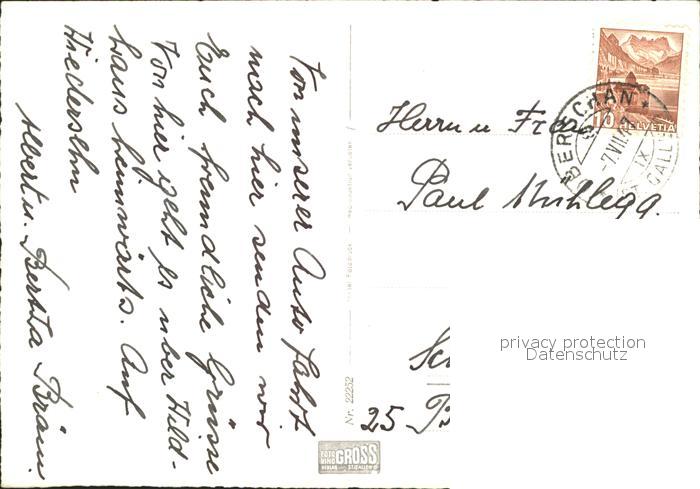 Von unserer Auto fahrt
nach hier senden wir
Euch freundliche Grüsse
Von hier geht es über Wild-
haus heimwärts. Auf
Wiedersehn
Albert u. Bertha Bräm.
Herrn u. Frau
Paul Mühlegg.
25
10
HELVETIA
BERSCHAN
ST. GALL
Nr. 22252
FOTO
GROSS
VERLAG ST. GALLEN
privacy protection
Datenschutz